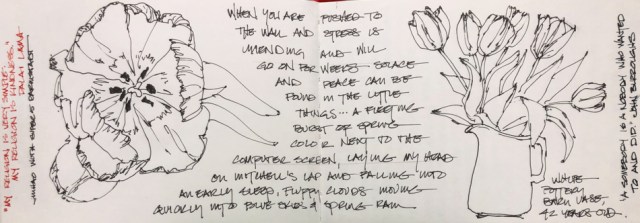 "MY RELIGION IS VERY SIMPLE.
MY RELIGION IS KINDNESS."
DALAI LAMA
WITH
WHEN YOU ARE PUSHED TO
THE WALL AND STRESS IS
UNENDING AND WILL
GO ON FOR WEEKS - SOLACE
AND PEACE CAN BE
FOUND IN THE LITTLE
THINGS... A FLEETING
BURST OF SPRING
COLOR NEXT TO THE
COMPUTER SCREEN, LAYING MY HEAD
ON MITCHELL'S LAP AND FALLING INTO
AN EARLY SLEEP, FLUFFY CLOUDS MOVING
QUICKLY INTO BLUE SKIES & SPRING RAIN
WHITE
POTTERY
BARN VASE,
12 YEARS OLD
"A SOMEBODY IS A NOBODY WHO WANTED
TO AND DID." JOHN BURROUGHS